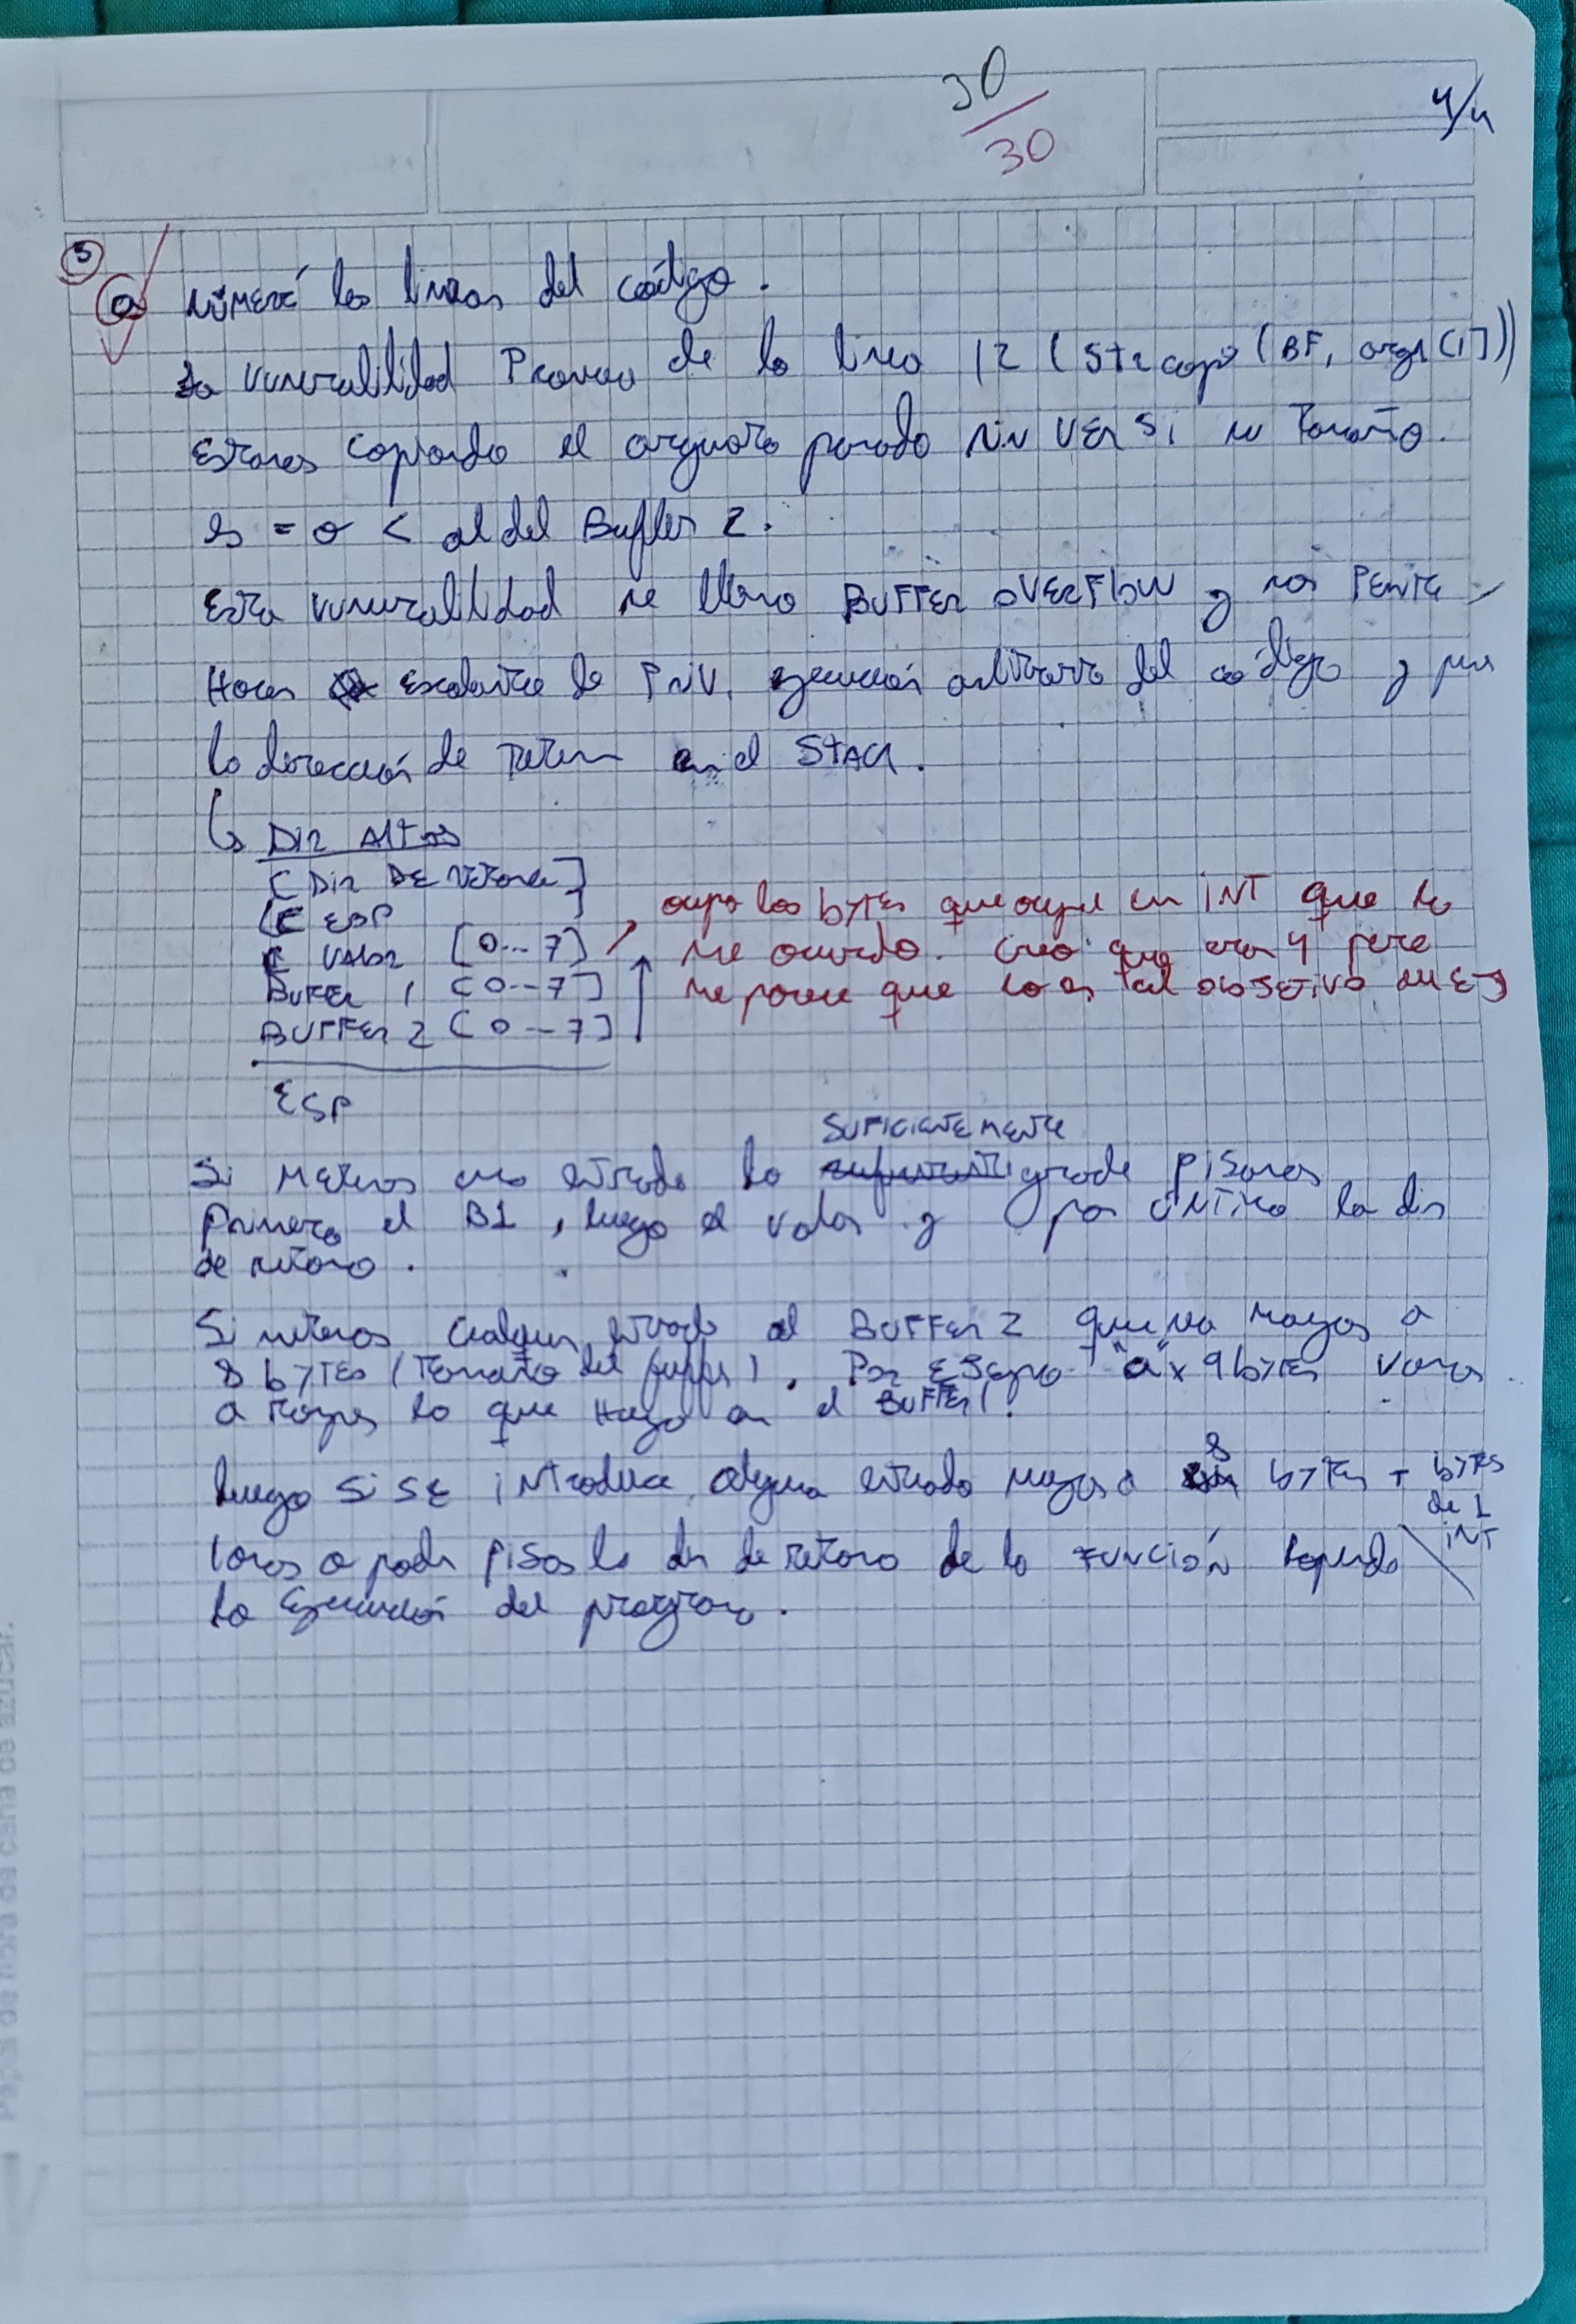 30
30
4/4
3
a Númeré las lineas del código.
La vuneralilidad Provene de la linea 12 (Strcopy (BF, argv[1]))
Estamos copiando el argumento pasado sin ver si su Tamaño.
es = o < al del Buffer 2.
Esta vuneralilidad se llama BUFFER OVERFLOW y nos Permite
Hacer Escalamiento de Priv, ejecución arbitraria del código y
la dirección de return en el STACK.
↳ Dir Altas
[Dir DE retorno]
[ EBP ]
[ VALOR [0...7]
BUFFER 1 [0--7]
BUFFER 2 [0--7]
ESP
ocupa los bytes que ocupe un INT que no
me acuerdo. Creo que eran 4 pero
me parece que no es tal objetivo del Ej
SUFICIENTEMENTE
Si metemos una entrada lo grande pisamos
Primero el B1, luego el valor y por último la dir
de retorno.
Si metemos cualquier entrada al BUFFER 2 que sea mayor a
8 bytes (Tamaño del buffer). Por Ejemplo "a" x 9 bytes vamos
a romper lo que Haya en el BUFFER 1.
luego si SE introduce alguna entrada mayor a 8 bytes + bytes
de 1
INT
vamos a poder pisar la dir de retorno de la FUNCIÓN
la Ejecución del programa.
Papel de fibra de caña de azúcar.